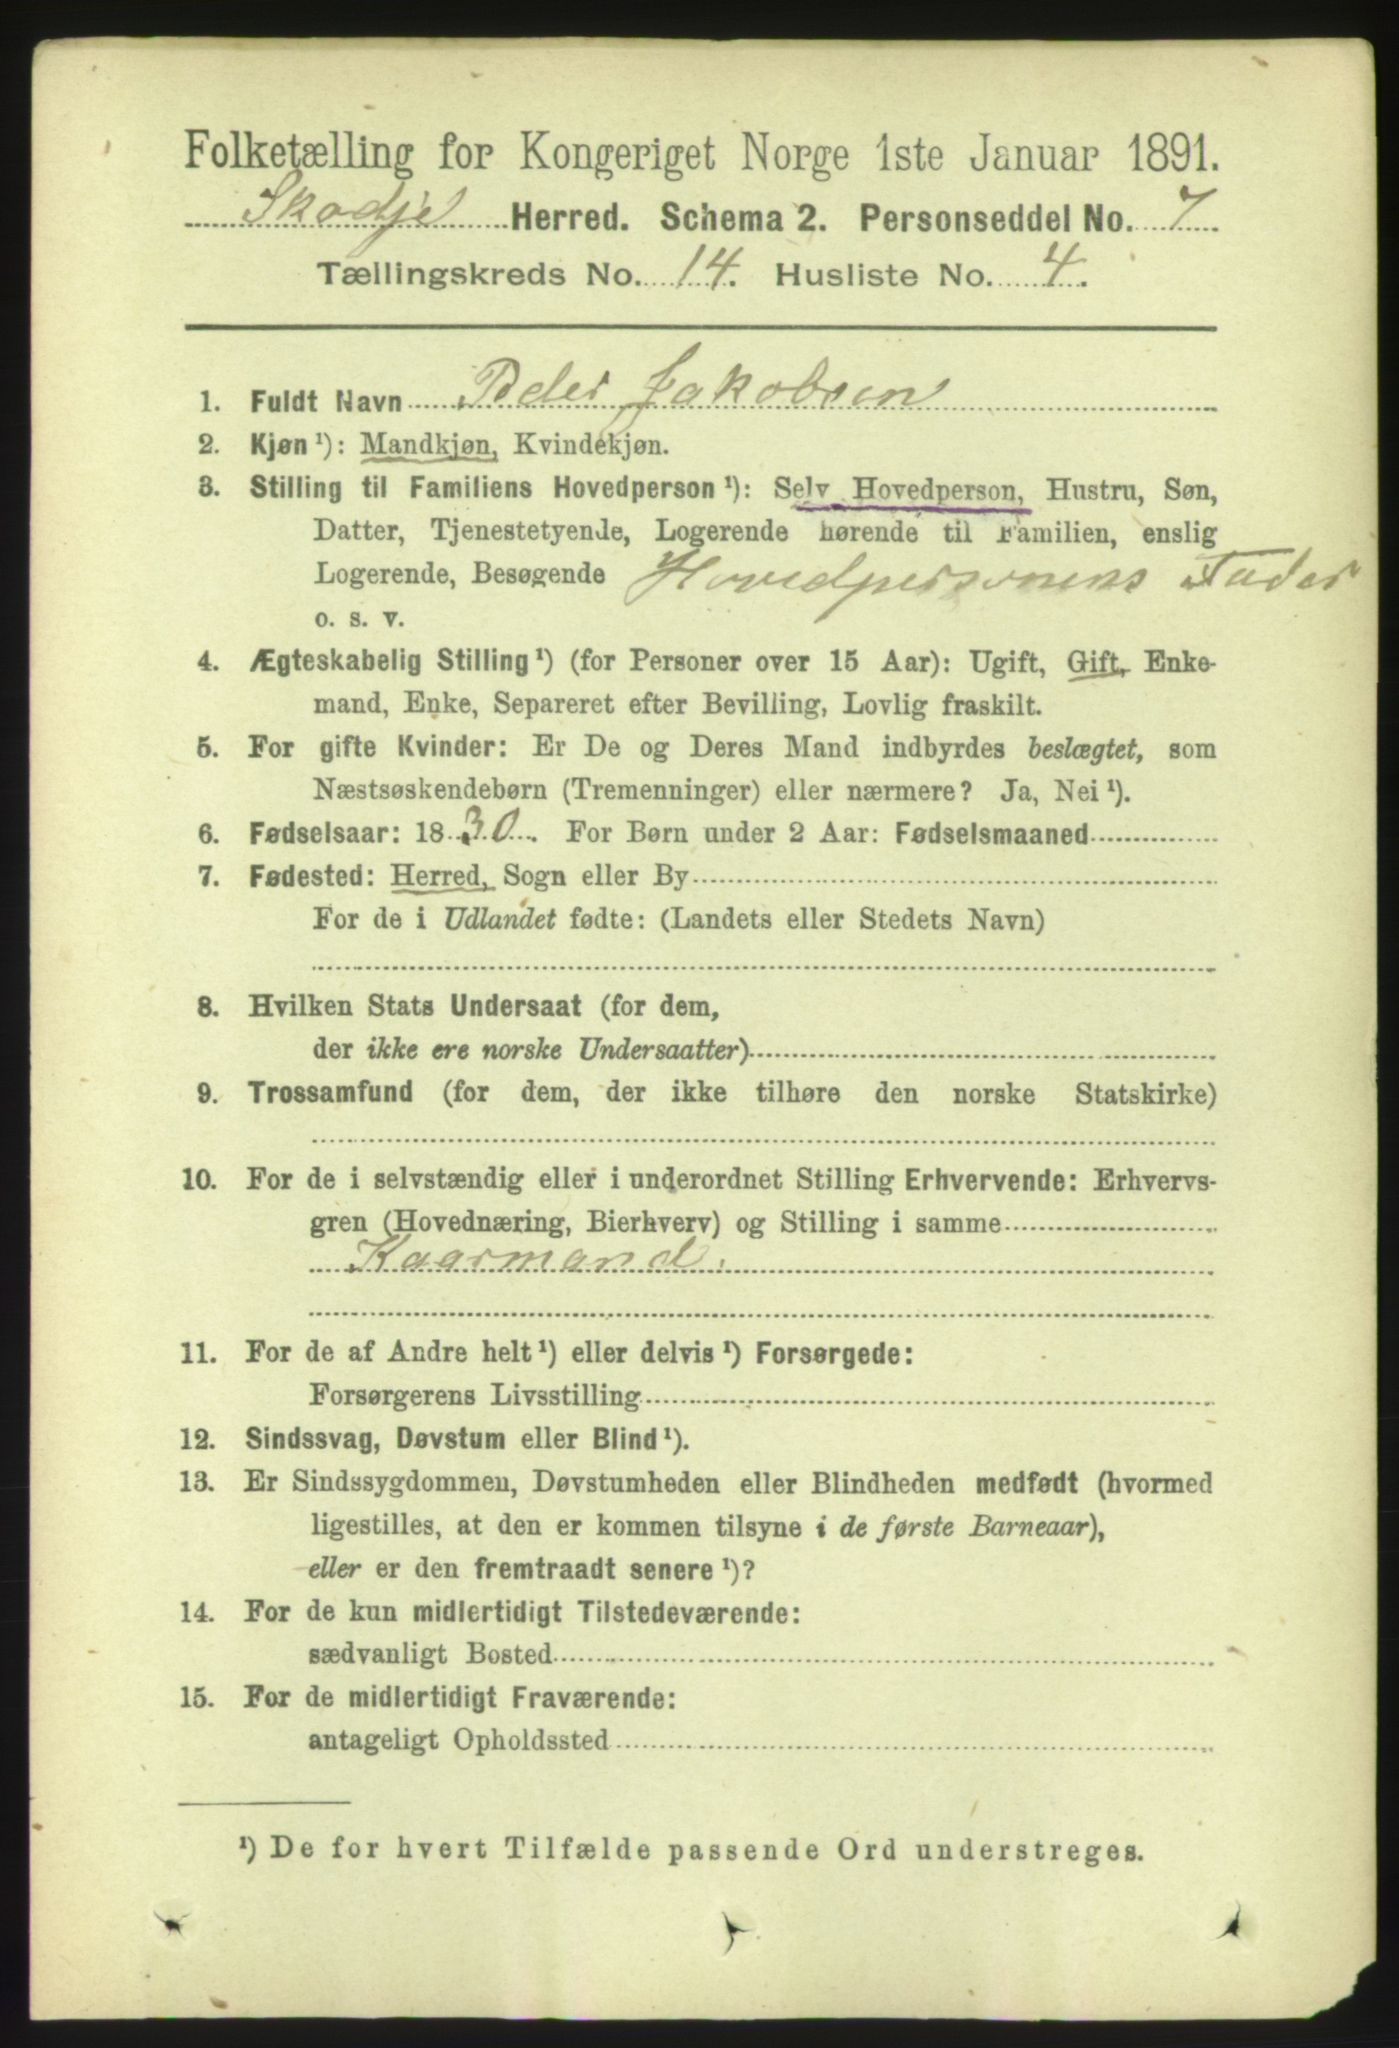 Folketælling for Kongeriget Norge 1ste Januar 1891.
Skodje Herred. Schema 2. Personseddel No. 7
Tællingskreds No. 14. Husliste No. 4.
1. Fuldt Navn Peder Jakobsen
2. Kjøn ¹): Mandkjøn, Kvindekjøn.
3. Stilling til Familiens Hovedperson ¹): Selv Hovedperson, Hustru, Søn,
Datter, Tjenestetyende, Logerende hørende til Familien, enslig
Logerende, Besøgende Hovedpersonens Fader
o. s. v.
4. Ægteskabelig Stilling ¹) (for Personer over 15 Aar): Ugift, Gift, Enke-
mand, Enke, Separeret efter Bevilling, Lovlig fraskilt.
5. For gifte Kvinder: Er De og Deres Mand indbyrdes beslægtet, som
Næstsøskendebørn (Tremenninger) eller nærmere? Ja, Nei ¹).
6. Fødselsaar: 1830. For Børn under 2 Aar: Fødselsmaaned
7. Fødested: Herred, Sogn eller By
For de i Udlandet fødte: (Landets eller Stedets Navn)
8. Hvilken Stats Undersaat (for dem,
der ikke ere norske Undersaatter)
9. Trossamfund (for dem, der ikke tilhøre den norske Statskirke)
10. For de i selvstændig eller i underordnet Stilling Erhvervende: Erhvervs-
gren (Hovednæring, Bierhverv) og Stilling i samme
Kaarmand.
11. For de af Andre helt ¹) eller delvis ¹) Forsørgede:
Forsørgerens Livsstilling
12. Sindssvag, Døvstum eller Blind ¹).
13. Er Sindssygdommen, Døvstumheden eller Blindheden medfødt (hvormed
ligestilles, at den er kommen tilsyne i de første Barneaar),
eller er den fremtraadt senere ¹)?
14. For de kun midlertidigt Tilstedeværende:
sædvanligt Bosted
15. For de midlertidigt Fraværende:
antageligt Opholdssted
¹) De for hvert Tilfælde passende Ord understreges.